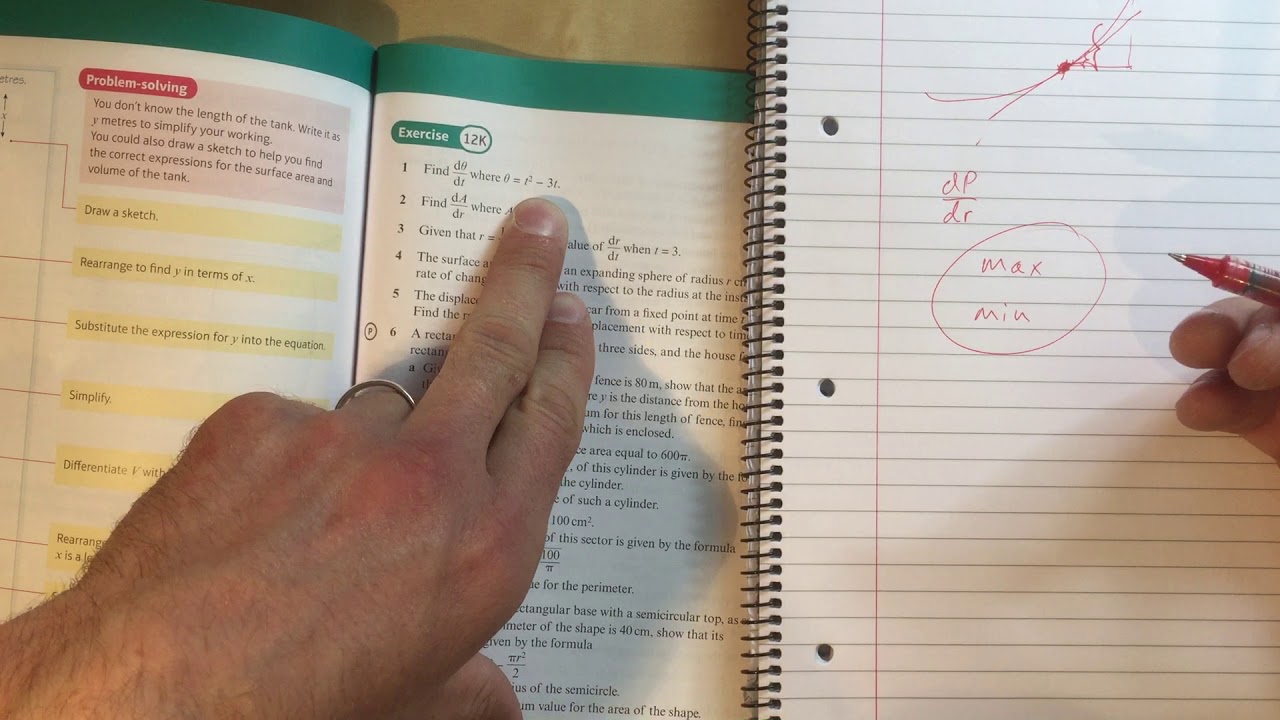 etres.
x
Problem-solving
You don't know the length of the tank. Write it as
y metres to simplify your working.
You could also draw a sketch to help you find
the correct expressions for the surface area and
volume of the tank.
Draw a sketch.
Rearrange to find y in terms of x.
Substitute the expression for y into the equation.
Simplify.
Differentiate V with
Rearrange
x is a
Exercise 12K
1 Find dθ/dt where θ = t² – 3t.
2 Find dA/dr where
3 Given that r = value of dr/dt when t = 3.
4 The surface an expanding sphere of radius r
rate of chang with respect to the radius at the
5 The displace car from a fixed point at time
Find the placement with respect to
P 6 A rectan three sides, and the house
rectan
a Gi fence is 80 m, show that the
th re y is the distance from the
um for this length of fence,
which is enclosed.
ce area equal to 600π.
, of this cylinder is given by the
the cylinder.
e of such a cylinder.
100 cm².
of this sector is given by the formula
100/π
ue for the perimeter.
ctangular base with a semicircular top, as
imeter of the shape is 40 cm, show that its
given by the formula
– πr²/2
ius of the semicircle.
um value for the area of the shape.
dP/dr
max
min